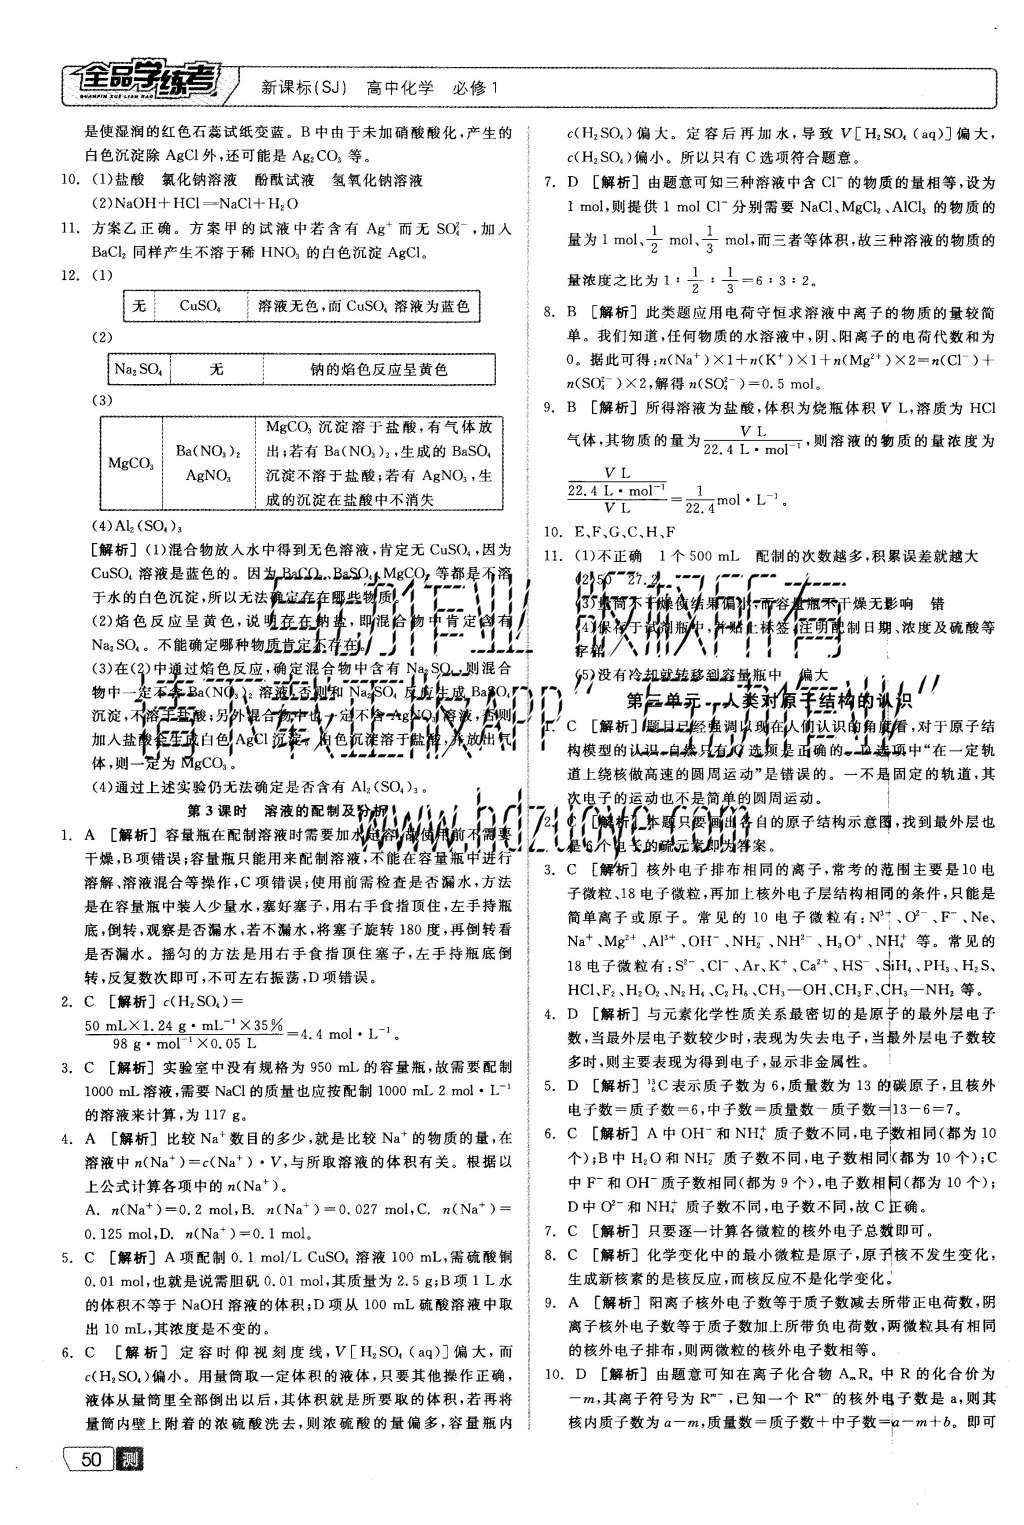 全品学练考
QUANPIN XUE LIAN KAO
新课标(SJ) 高中化学 必修1
是使湿润的红色石蕊试纸变蓝。B中由于未加硝酸酸化,产生的
白色沉淀除 AgCl 外,还可能是 Ag₂CO₃ 等。
10. (1)盐酸 氯化钠溶液 酚酞试液 氢氧化钠溶液
(2)NaOH+HCl=NaCl+H₂O
11. 方案乙正确。方案甲的试液中若含有 Ag⁺ 而无 SO₄²⁻,加入
BaCl₂ 同样产生不溶于稀 HNO₃ 的白色沉淀 AgCl。
12. (1)
无 CuSO₄ 溶液无色,而 CuSO₄ 溶液为蓝色
(2)
Na₂SO₄ 无 钠的焰色反应呈黄色
(3)
MgCO₃ Ba(NO₃)₂ AgNO₃
MgCO₃ 沉淀溶于盐酸,有气体放
出;若有 Ba(NO₃)₂,生成的 BaSO₄
沉淀不溶于盐酸;若有 AgNO₃,生
成的沉淀在盐酸中不消失
(4)Al₂(SO₄)₃
[解析] (1)混合物放入水中得到无色溶液,肯定无 CuSO₄,因为
CuSO₄ 溶液是蓝色的。因为 BaCO₃、BaSO₄、MgCO₃ 等都是不溶
于水的白色沉淀,所以无法确定存在哪些物质。
(2)焰色反应呈黄色,说明存在钠盐,即混合物中肯定含有
Na₂SO₄。不能确定哪种物质肯定不存在。
(3)在(2)中通过焰色反应,确定混合物中含有 Na₂SO₄,则混合
物中一定不含 Ba(NO₃)₂ 溶液,否则和 Na₂SO₄ 反应生成 BaSO₄
沉淀,不溶于盐酸;另外混合物中也一定不含 AgNO₃ 溶液,否则
加入盐酸会生成白色 AgCl 沉淀。白色沉淀溶于盐酸,并放出气
体,则一定为 MgCO₃。
(4)通过上述实验仍无法确定是否含有 Al₂(SO₄)₃。
第3课时 溶液的配制及分析
1. A [解析] 容量瓶在配制溶液时需要加水定容,故使用前不需要
干燥,B项错误;容量瓶只能用来配制溶液,不能在容量瓶中进行
溶解、溶液混合等操作,C项错误;使用前需检查是否漏水,方法
是在容量瓶中装入少量水,塞好塞子,用右手食指顶住,左手持瓶
底,倒转,观察是否漏水,若不漏水,将塞子旋转 180 度,再倒转看
是否漏水。摇匀的方法是用右手食指顶住塞子,左手持瓶底倒
转,反复数次即可,不可左右振荡,D项错误。
2. C [解析] c(H₂SO₄)=
50 mL×1.24 g·mL⁻¹×35% / 98 g·mol⁻¹×0.05 L =4.4 mol·L⁻¹。
3. C [解析] 实验室中没有规格为 950 mL 的容量瓶,故需要配制
1000 mL 溶液,需要 NaCl 的质量也应按配制 1000 mL 2 mol·L⁻¹
的溶液来计算,为 117 g。
4. A [解析] 比较 Na⁺ 数目的多少,就是比较 Na⁺ 的物质的量,在
溶液中 n(Na⁺)=c(Na⁺)·V,与所取溶液的体积有关。根据以
上公式计算各项中的 n(Na⁺)。
A. n(Na⁺)=0.2 mol,B. n(Na⁺)=0.027 mol,C. n(Na⁺)=
0.125 mol,D. n(Na⁺)=0.1 mol。
5. C [解析] A项配制 0.1 mol/L CuSO₄ 溶液 100 mL,需硫酸铜
0.01 mol,也就是说需胆矾 0.01 mol,其质量为 2.5 g;B项 1 L 水
的体积不等于 NaOH 溶液的体积;D项从 100 mL 硫酸溶液中取
出 10 mL,其浓度是不变的。
6. C [解析] 定容时仰视刻度线,V[H₂SO₄(aq)]偏大,而
c(H₂SO₄)偏小。用量筒取一定体积的液体,只要其他操作正确,
液体从量筒里全部倒出以后,其体积就是所要取的体积,若再将
量筒内壁上附着的浓硫酸洗去,则浓硫酸的量偏多,容量瓶内
c(H₂SO₄)偏大。定容后再加水,导致 V[H₂SO₄(aq)]偏大,
c(H₂SO₄)偏小。所以只有C选项符合题意。
7. D [解析] 由题意可知三种溶液中含 Cl⁻ 的物质的量相等,设为
1 mol,则提供 1 mol Cl⁻ 分别需要 NaCl、MgCl₂、AlCl₃ 的物质的
量为 1 mol、1/2 mol、1/3 mol,而三者等体积,故三种溶液的物质的
量浓度之比为 1∶1/2∶1/3=6∶3∶2。
8. B [解析] 此类题应用电荷守恒求溶液中离子的物质的量较简
单。我们知道,任何物质的水溶液中,阴、阳离子的电荷代数和为
0。据此可得:n(Na⁺)×1+n(K⁺)×1+n(Mg²⁺)×2=n(Cl⁻)+
n(SO₄²⁻)×2,解得 n(SO₄²⁻)=0.5 mol。
9. B [解析] 所得溶液为盐酸,体积为烧瓶体积 V L,溶质为 HCl
气体,其物质的量为 V L / 22.4 L·mol⁻¹,则溶液的物质的量浓度为
V L / 22.4 L·mol⁻¹ / V L = 1/22.4 mol·L⁻¹。
10. E、F、G、C、H、F
11. (1)不正确 1个 500 mL 配制的次数越多,积累误差就越大
(2)50 27.2
(3)量筒不干燥使结果偏小,而容量瓶不干燥无影响 错
(4)保存于试剂瓶中,并贴上标签,注明配制日期、浓度及硫酸等
字样
(5)没有冷却就转移到容量瓶中 偏大
第三单元 人类对原子结构的认识
1. C [解析] 题目已经强调以现在人们认识的角度看,对于原子结
构模型的认识,自然只有C选项是正确的。D选项中“在一定轨
道上绕核做高速的圆周运动”是错误的。一不是固定的轨道,其
次电子的运动也不是简单的圆周运动。
2. C [解析] 本题只要画出各自的原子结构示意图,找到最外层也
是6个电子的硫元素即为答案。
3. C [解析] 核外电子排布相同的离子,常考的范围主要是10电
子微粒、18电子微粒,再加上核外电子层结构相同的条件,只能是
简单离子或原子。常见的 10 电子微粒有:N³⁻、O²⁻、F⁻、Ne、
Na⁺、Mg²⁺、Al³⁺、OH⁻、NH₂⁻、NH²⁻、H₃O⁺、NH₄⁺ 等。常见的
18电子微粒有:S²⁻、Cl⁻、Ar、K⁺、Ca²⁺、HS⁻、SiH₄、PH₃、H₂S、
HCl、F₂、H₂O₂、N₂H₄、C₂H₆、CH₃—OH、CH₃F、CH₃—NH₂ 等。
4. D [解析] 与元素化学性质关系最密切的是原子的最外层电子
数,当最外层电子数较少时,表现为失去电子,当最外层电子数较
多时,则主要表现为得到电子,显示非金属性。
5. D [解析] ¹³₆C表示质子数为6,质量数为 13 的碳原子,且核外
电子数=质子数=6,中子数=质量数－质子数=13－6=7。
6. C [解析] A中 OH⁻ 和 NH₄⁺ 质子数不同,电子数相同(都为10
个);B中 H₂O 和 NH₂⁻ 质子数不同,电子数相同(都为 10 个);C
中 F⁻ 和 OH⁻ 质子数相同(都为 9 个),电子数相同(都为 10 个);
D中 O²⁻ 和 NH₄⁺ 质子数不同,电子数不同,故C正确。
7. C [解析] 只要逐一计算各微粒的核外电子总数即可。
8. C [解析] 化学变化中的最小微粒是原子,原子核不发生变化,
生成新核素的是核反应,而核反应不是化学变化。
9. A [解析] 阳离子核外电子数等于质子数减去所带正电荷数,阴
离子核外电子数等于质子数加上所带负电荷数,两微粒具有相同
的核外电子排布,则两微粒的核外电子数相等。
10. D [解析] 由题意可知在离子化合物 AₘRₙ 中 R 的化合价为
－m,其离子符号为 Rᵐ⁻,已知一个 Rᵐ⁻ 的核外电子数是 a,则其
核内质子数为 a－m,质量数=质子数+中子数=a－m+b。即可
互动作业 版权所有
请下载正版APP“互动作业”
www.hdzuoye.com
50 测